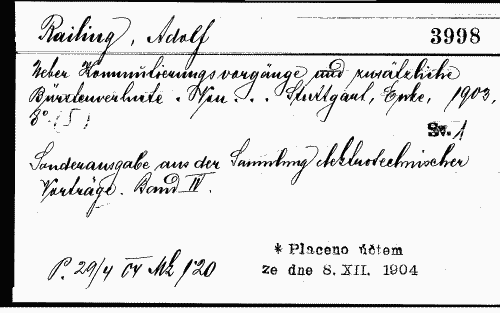 Railing, Adolf
3998
Ueber Kommutierungsvorgänge und zusätzliche
Bürstenverluste. Von... Stuttgart, Enke, 1903,
8° (5)
Sv. 1
Sonderausgabe aus der Sammlung elektrotechnischer
Vorträge. Band IV.
P. 29/4 Mk 1·20
* Placeno účtem
ze dne 8. XII. 1904